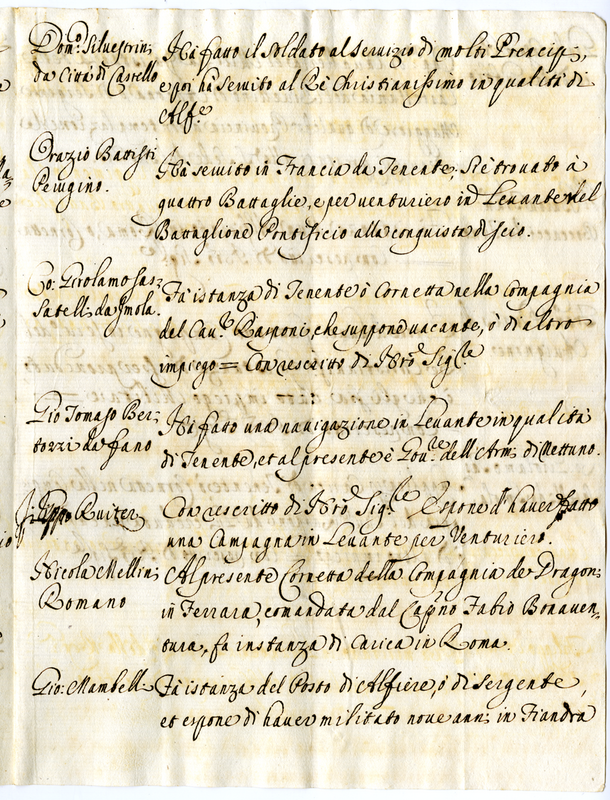 Dom.º Silvestrini
da Città di Castello
Hà fatto il soldato al servizio di molti Prencipi,
e poi hà servito al Rè Christianissimo in qualità di
Alf.e
Orazio Battisti
Perugino.
Hà servito in Francia da Tenente. Si è trovato à
quattro Battaglie, e per venturiero in Levante del
Battaglione Pontificio alla conquista di Scio.
Co: Girolamo Sas=
satelli da Jmola.
Fà istanza di Tenente ò Cornetta nella Compagnia
del Cav.r Rasponi, che suppone vacante, ò di altro
impiego = Con rescritto di Nrõ Sig.re
Gio Tomaso Ber=
tozzi da fano
Hà fatto una navigazione in Levante in qualità
di Tenente, et al presente è Gov.re dell'Armi di Nettuno.
Filippo Ruiter
Con rescritto di Nrõ Sig.re Espone d'haver fatto
una Campagna in Levante per Venturiero.
Nicola Mellini
Romano
Al presente Cornetta della Compagnia de Dragoni
in Ferrara, comandata dal Cap.no Fabio Bonaven=
tura, fa instanza di Carica in Roma.
Gio: Mambelli
Fà istanza del Posto di Alfiere, ò di Sergente,
et espone di haver militato nove anni in Fiandra